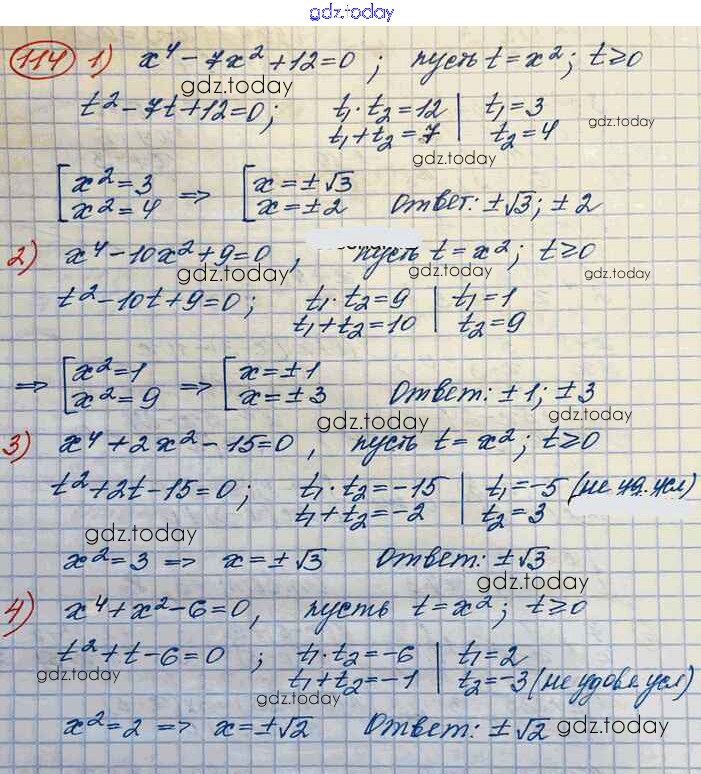 gdz.today
114 1) x⁴ - 7x² + 12 = 0 ; пусть t = x² ; t ≥ 0
gdz.today
t² - 7t + 12 = 0 ; t₁ · t₂ = 12 | t₁ = 3
t₁ + t₂ = 7 | t₂ = 4
gdz.today
gdz.today
[ x² = 3 => [ x = ±√3
x² = 4 x = ±2 Ответ: ±√3 ; ±2
2) x⁴ - 10x² + 9 = 0 , пусть t = x² ; t ≥ 0
gdz.today gdz.today gdz.today
t² - 10t + 9 = 0 ; t₁ · t₂ = 9 | t₁ = 1
t₁ + t₂ = 10 | t₂ = 9
=> [ x² = 1 => [ x = ±1
x² = 9 x = ±3 Ответ: ±1 ; ±3
gdz.today gdz.today
3) x⁴ + 2x² - 15 = 0 , пусть t = x² ; t ≥ 0
t² + 2t - 15 = 0 ; t₁ · t₂ = -15 | t₁ = -5 (не уд. усл)
t₁ + t₂ = -2 | t₂ = 3
gdz.today
x² = 3 => x = ±√3 Ответ: ±√3
gdz.today
4) x⁴ + x² - 6 = 0 , пусть t = x² ; t ≥ 0
t² + t - 6 = 0 ; t₁ · t₂ = -6 | t₁ = 2
t₁ + t₂ = -1 | t₂ = -3 (не удов. усл)
gdz.today gdz.today
x² = 2 => x = ±√2 Ответ: ±√2
gdz.today